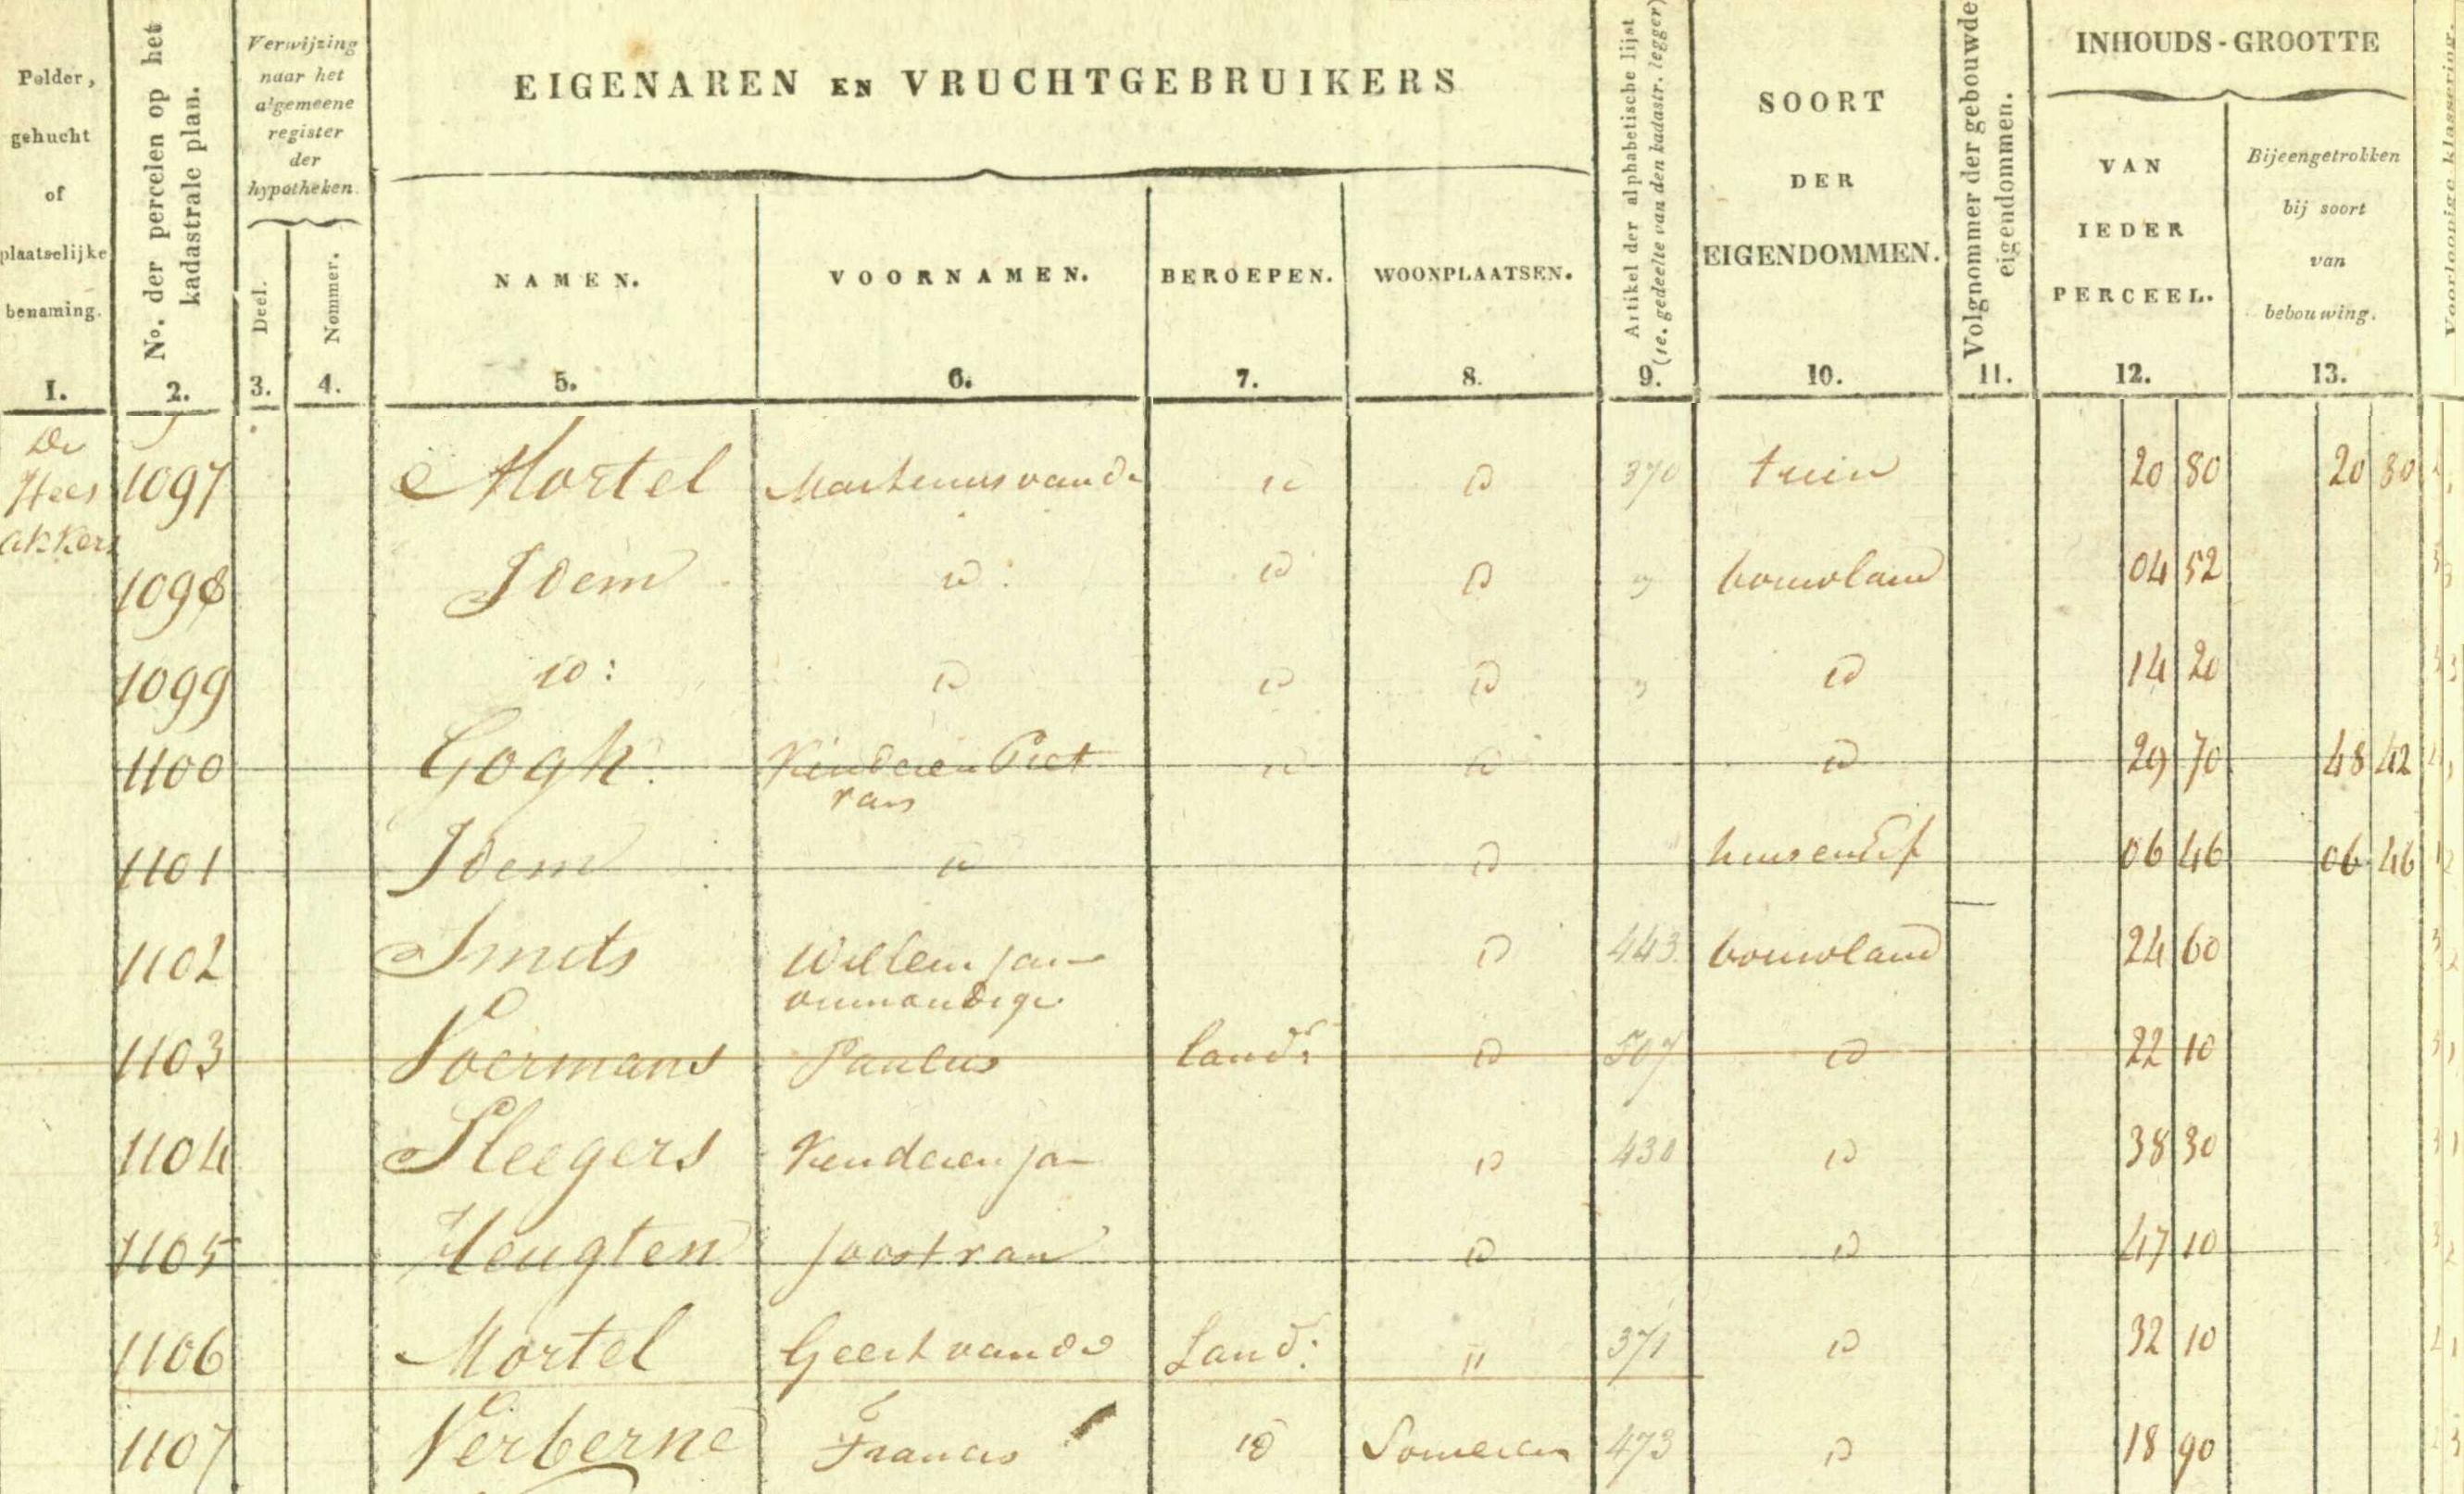 Polder, gehucht of plaatselijke benaming.
No. der percelen op het kadastrale plan.
Verwijzing naar het algemeene register der hypotheken.
Deel.
Nommer.
EIGENAREN EN VRUCHTGEBRUIKERS
NAMEN.
VOORNAMEN.
BEROEPEN.
WOONPLAATSEN.
Artikel der alphabetische lijst
(1e. gedeelte van den kadastr. legger)
SOORT DER EIGENDOMMEN.
Volgnommer der gebouwde eigendommen.
INHOUDS-GROOTTE
VAN IEDER PERCEEL.
Bijeengetrokken bij soort van bebouwing.
Voorloopige klassering.
1. 2. 3. 4. 5. 6. 7. 8. 9. 10. 11. 12. 13.
De Hees akkers
1097 Mortel Martinus van de id id 370 tuin 20 80 20 80
1098 Idem id: id id " bouwland 04 52
1099 id: id id id " id 14 20
1100 Gogh Kinderen Piet van id id id 29 70 48 42
1101 Idem id id huis en Erf 06 46 06 46
1102 Smets Willem Jan onmondige id 443 bouwland 24 60
1103 Voermans Paulus landr id 507 id 22 10
1104 Sleegers Kinderen Jan id 430 id 38 30
1105 Heugten Joost van id id 47 10
1106 Mortel Geert van de Landr: " 371 id 32 10
1107 Verberne Francis id Someren 473 id 18 90